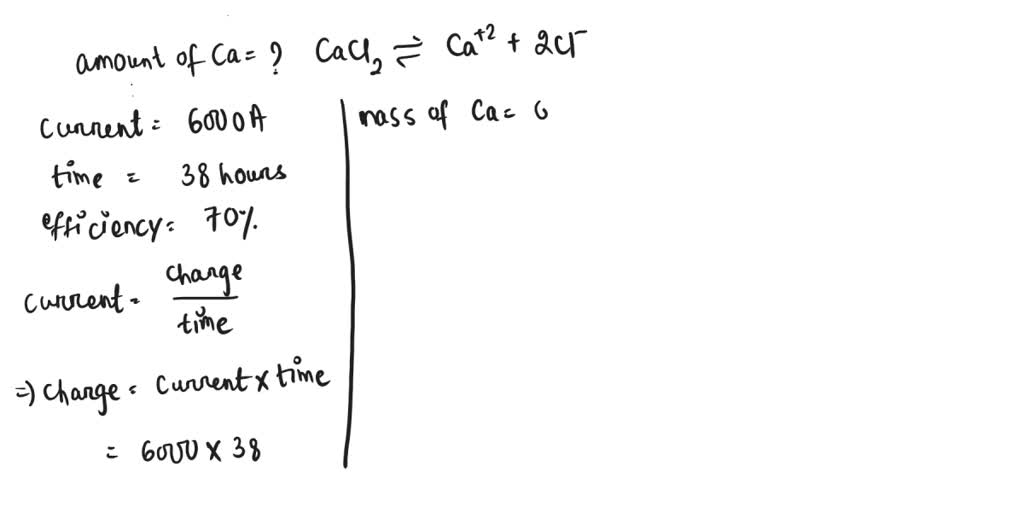 amount of Ca = ? CaCl₂ ⇌ Ca⁺² + 2Cl⁻
current = 6000A
time = 38 hours
efficiency = 70%
current = charge / time
⇒ charge = current × time
= 6000 × 38
mass of Ca =